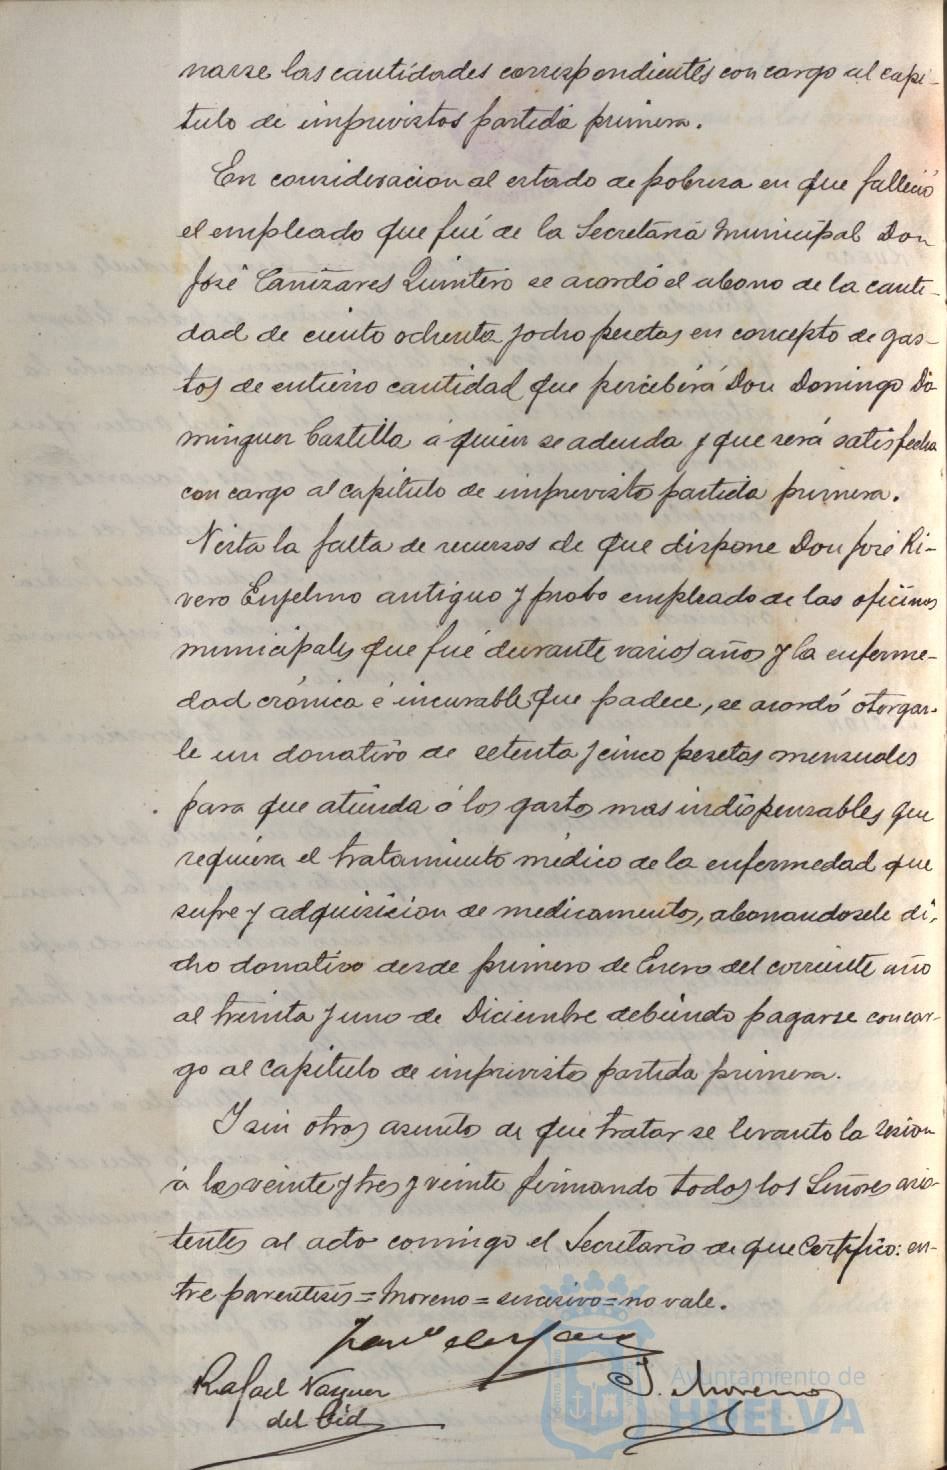 narse las cantidades correspondientes con cargo al capi-
tulo de imprevistos partida primera.
En consideracion al estado de pobresa en que falleció
el empleado que fué de la Secretaria Municipal Don
José Cañizares Quintero se acordó el abono de la canti-
dad de ciento ochenta y ocho pesetas en concepto de gas-
tos de entierro cantidad que percibirá Don Domingo Do
minguez Castilla á quien se adeuda y que será satisfecha
con cargo al capitulo de imprevistos partida primera.
Vista la falta de recursos de que dispone Don José Ri-
vero antiguo y probo empleado de las oficinas
municipales que fué durante varios años y la enferme-
dad crónica é incurable que padece, se acordó otorgar-
le un donativo de setenta y cinco pesetas mensuales
para que atienda á los gastos mas indispensables que
requiera el tratamiento médico de la enfermedad que
sufre y adquisicion de medicamentos, abonandosele di-
cho donativo desde primero de Enero del corriente año
al treinta y uno de Diciembre debiendo pagarse con car-
go al capitulo de imprevistos partida primera.
Y sin otros asuntos de que tratar se levanto la sesion
á las veinte y tres y veinte firmando todos los Señores asis-
tentes al acto conmigo el Secretario de que Certifico: en-
tre parentesis = Moreno = = no vale.
Rafael Vazquez
del Cid
J. Moreno
Ayuntamiento de
HUELVA